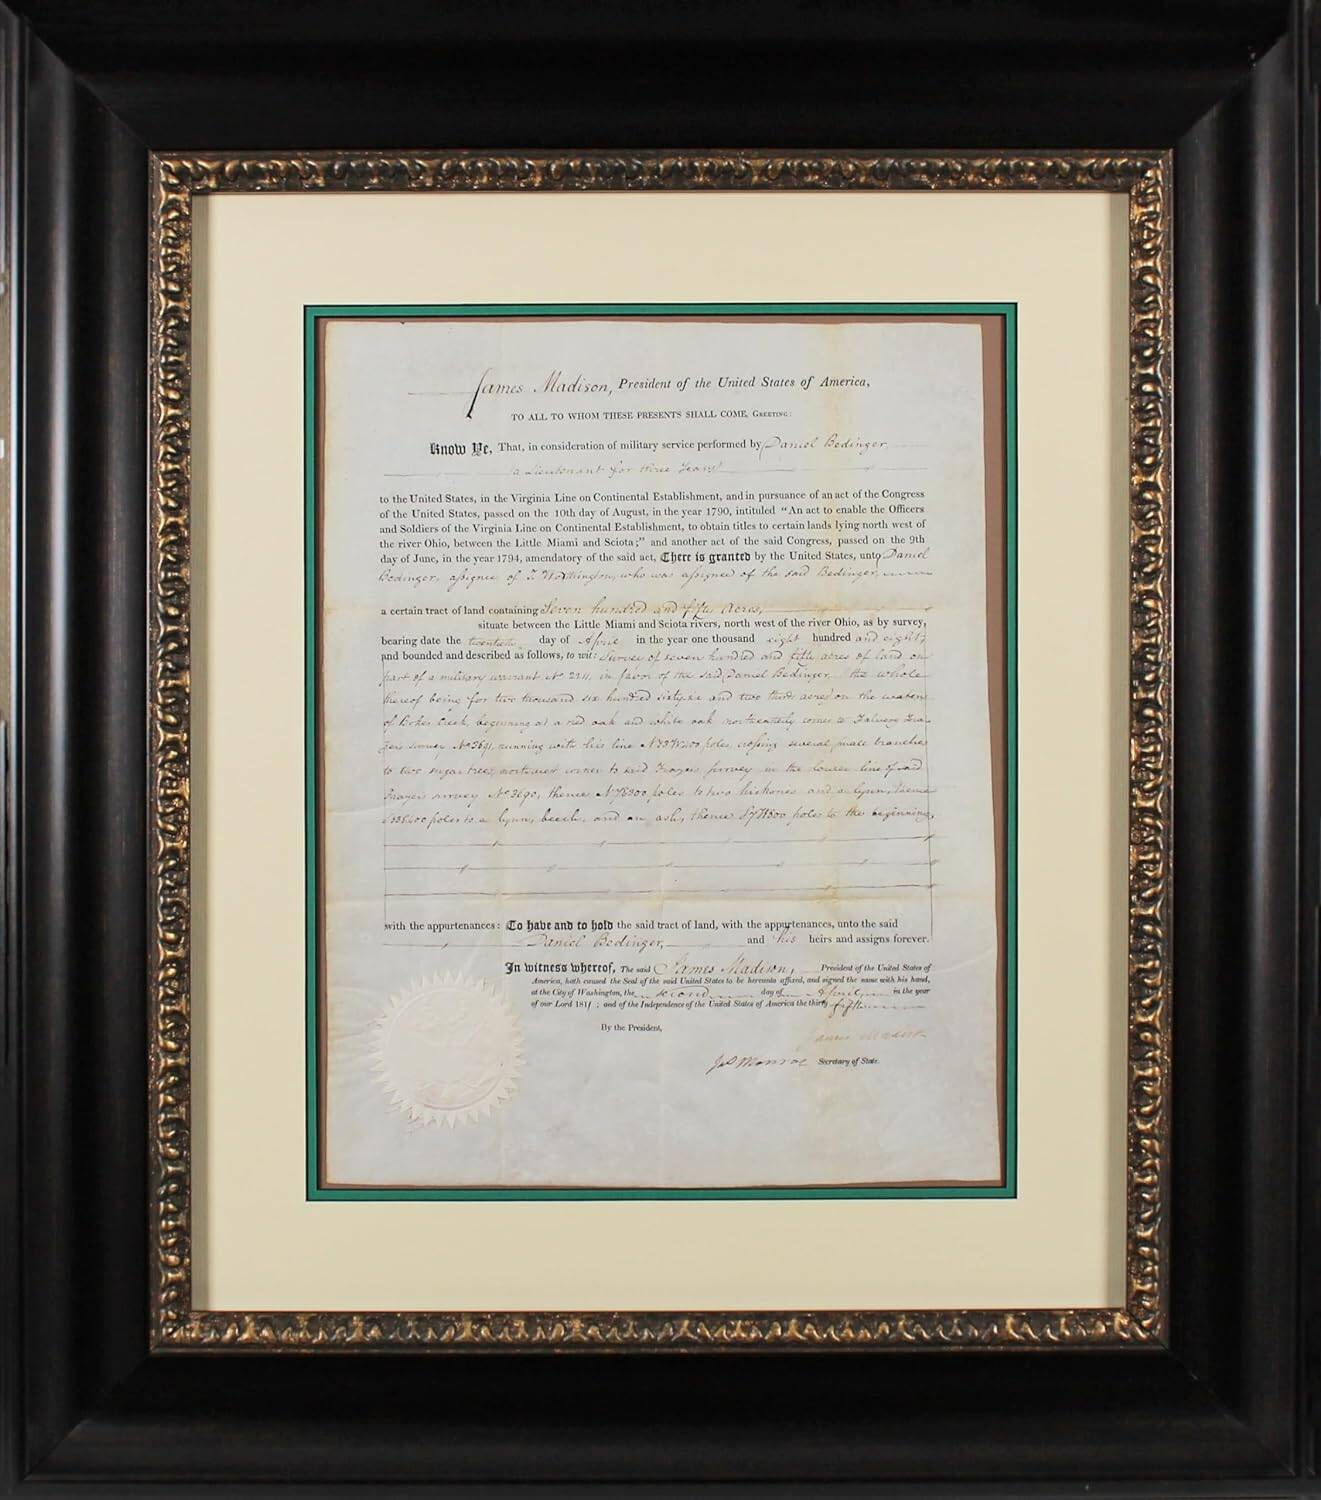 James Madison, President of the United States of America,
TO ALL TO WHOM THESE PRESENTS SHALL COME, Greeting:
Know Ye, That, in consideration of military service performed by Daniel Bedinger
(a Lieutenant for three Years)
to the United States, in the Virginia Line on Continental Establishment, and in pursuance of an act of the Congress
of the United States, passed on the 10th day of August, in the year 1790, intituled "An act to enable the Officers
and Soldiers of the Virginia Line on Continental Establishment, to obtain titles to certain lands lying north west of
the river Ohio, between the Little Miami and Sciota;" and another act of the said Congress, passed on the 9th
day of June, in the year 1794, amendatory of the said act, There is granted by the United States, unto Daniel
Bedinger, assignee of T. Worthington, who was assignee of the said Bedinger,
a certain tract of land containing Seven hundred and fifty Acres,
situate between the Little Miami and Sciota rivers, north west of the river Ohio, as by survey,
bearing date the twentieth day of April in the year one thousand eight hundred and eight;
and bounded and described as follows, to wit: Survey of seven hundred and fifty acres of land on
part of a military warrant No 2311, in favor of the said Daniel Bedinger, (the whole
thereof being for two thousand six hundred sixty six and two thirds acres) on the waters
of Creek, beginning at a red oak and white oak northeasterly corner to
survey No 3691, running with his line poles, crossing several small branches
to two sugar trees, northwest corner to said Frazers survey in the lower line of said
Frazers survey No 3690, thence N78E300 poles to two hickories and a lynn, thence
poles to a lynn, beech, and an ash, thence poles to the beginning,
with the appurtenances: To have and to hold the said tract of land, with the appurtenances, unto the said
Daniel Bedinger, and his heirs and assigns forever.
In witness whereof, The said James Madison, President of the United States of
America, hath caused the Seal of the said United States to be hereunto affixed, and signed the same with his hand,
at the City of Washington, the second day of April, in the year
of our Lord 1811; and of the Independence of the United States of America the thirty fifth
By the President,
James Madison
Jas Monroe Secretary of State.